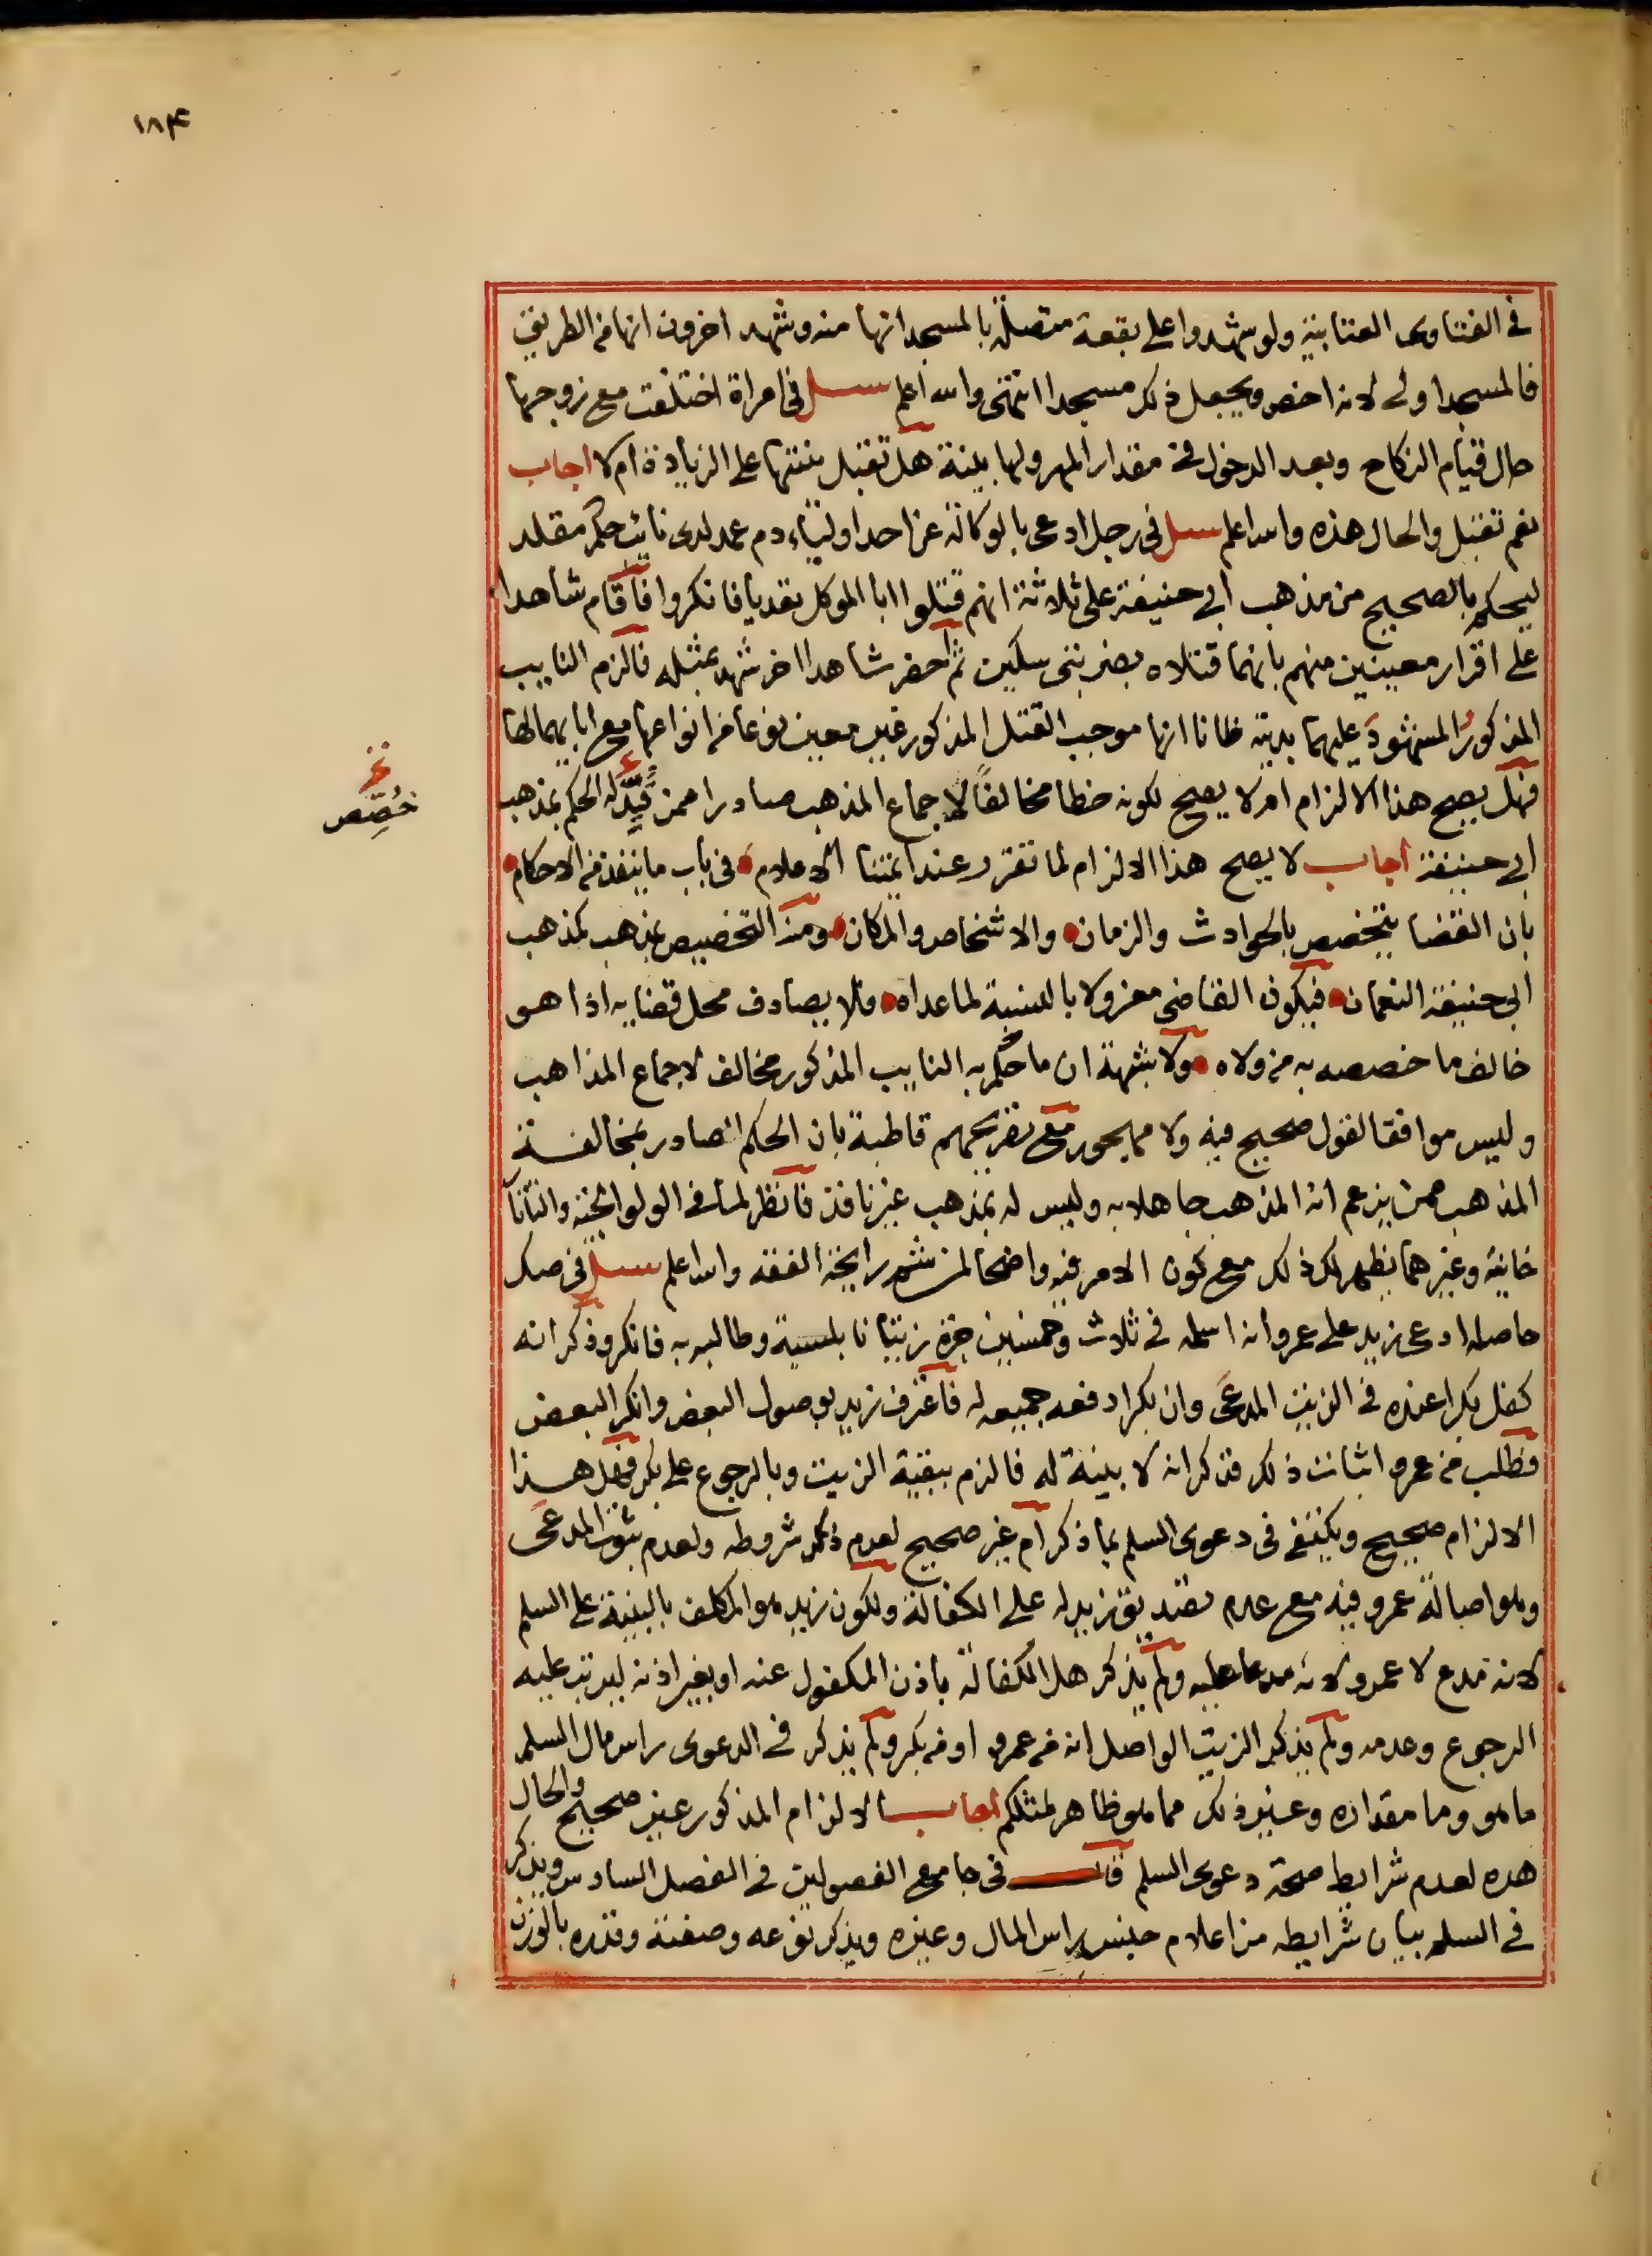 ١٨٤
في الفتاوى العتابية ولو شهدوا على بقعة متصلة بالمسجد انها منه وشهد اخرون انها من الطريق
فالمسجد اولى لانه اخص ويجعل ذلك مسجدا انتهى والله اعلم سىل في امراة اختلفت مع زوجها
حال قيام النكاح وبعد الدخول في مقدار المهر ولها بينة هل تقبل بينتها على الزيادة ام لا اجاب
نعم تقبل والحال هذه والله اعلم سىل في رجل ادعى بالوكالة عن احد اولياء دم عمد لدى نائب حكم مقلد
ليحكم بالصحيح من مذهب ابي حنيفة على ثلاثة انهم قتلوا ابا الموكل تعديا فانكروا فاقام شاهدا
على اقرار معينين منهم بانهما قتلاه بضربتي سكين ثم احضر شاهدا اخر شهد بمثله فالزم النايب
المذكور المشهود عليهما بدية ظانا انها موجب القتل المذكور غير معين نوعا من انواعها مع ابايهما لها
فهل يصح هذا الالزام ام لا يصح لكونه خطا مخالفا لاجماع المذهب صادرا ممن قيد له الحكم بمذهب
خ
خصص
ابي حنيفة اجاب لا يصح هذا الالزام لما تقرر عند ايمتنا الاعلام في باب ما ينفذ من الاحكام
بان القضا يتخصص بالحوادث والزمان والاشخاص والمكان ومنه التخصيص بمذهب كمذهب
ابي حنيفة النعمان فيكون القاضي معزولا بالنسبة لما عداه فلا يصادف محل قضايه اذا هو
خالف ما خصصه به من ولاه ولا شبهة ان ما حكم به النايب المذكور مخالف لاجماع المذاهب
وليس موافقا لقول صحيح فيه ولا مهجور مع تصريحهم قاطبة بان الحكم الصادر بمخالفة
المذهب ممن يزعم انه المذهب جاهلا به وليس له بمذهب غير نافذ فانظر لما في الولوالجية والتاتار
خانية وغيرهما يظهر لك ذلك مع كون الامر فيه واضحا لمن شم رايحة الفقه والله اعلم سىل في صك
حاصله ادعى زيد على عمرو انه اسلمه في ثلاث وخمسين جرة زيتا نابلسية وطالبه به فانكر وذكر انه
كفل بكرا عنده في الزيت المدعى وان بكرا دفعه جميعه له فاعترف زيد بوصول البعض وانكر البعض
فطلب من عمرو اثبات ذلك فذكر انه لا بينة له فالزم ببقية الزيت وبالرجوع على بكر فهل هذا
الالزام صحيح ويكتفى في دعوى السلم بما ذكر ام غير صحيح لعدم ذكر شروطه ولعدم ثبوت المدعى
وهو اصالة عمرو فيه مع عدم تصديق زيد له على الكفالة ولكون زيد هو المكلف بالبينة على السلم
لانه مدع لا عمرو لانه مدعا عليه ولم يذكر هل الكفالة باذن المكفول عنه او بغير اذنه ليترتب عليه
الرجوع وعدمه ولم يذكر الزيت الواصل انه من عمرو او من بكر ولم يذكر في الدعوى راس مال السلم
ما هو وما مقداره وغير ذلك مما هو ظاهر لمثلكم اجاب الالزام المذكور غير صحيح والحال
هذه لعدم شرايط صحة دعوى السلم قال في جامع الفصولين في الفصل السادس ويذكر
في السلم بيان شرايطه من اعلام جنس راس المال وغيره ويذكر نوعه وصفته وقدره بالوزن